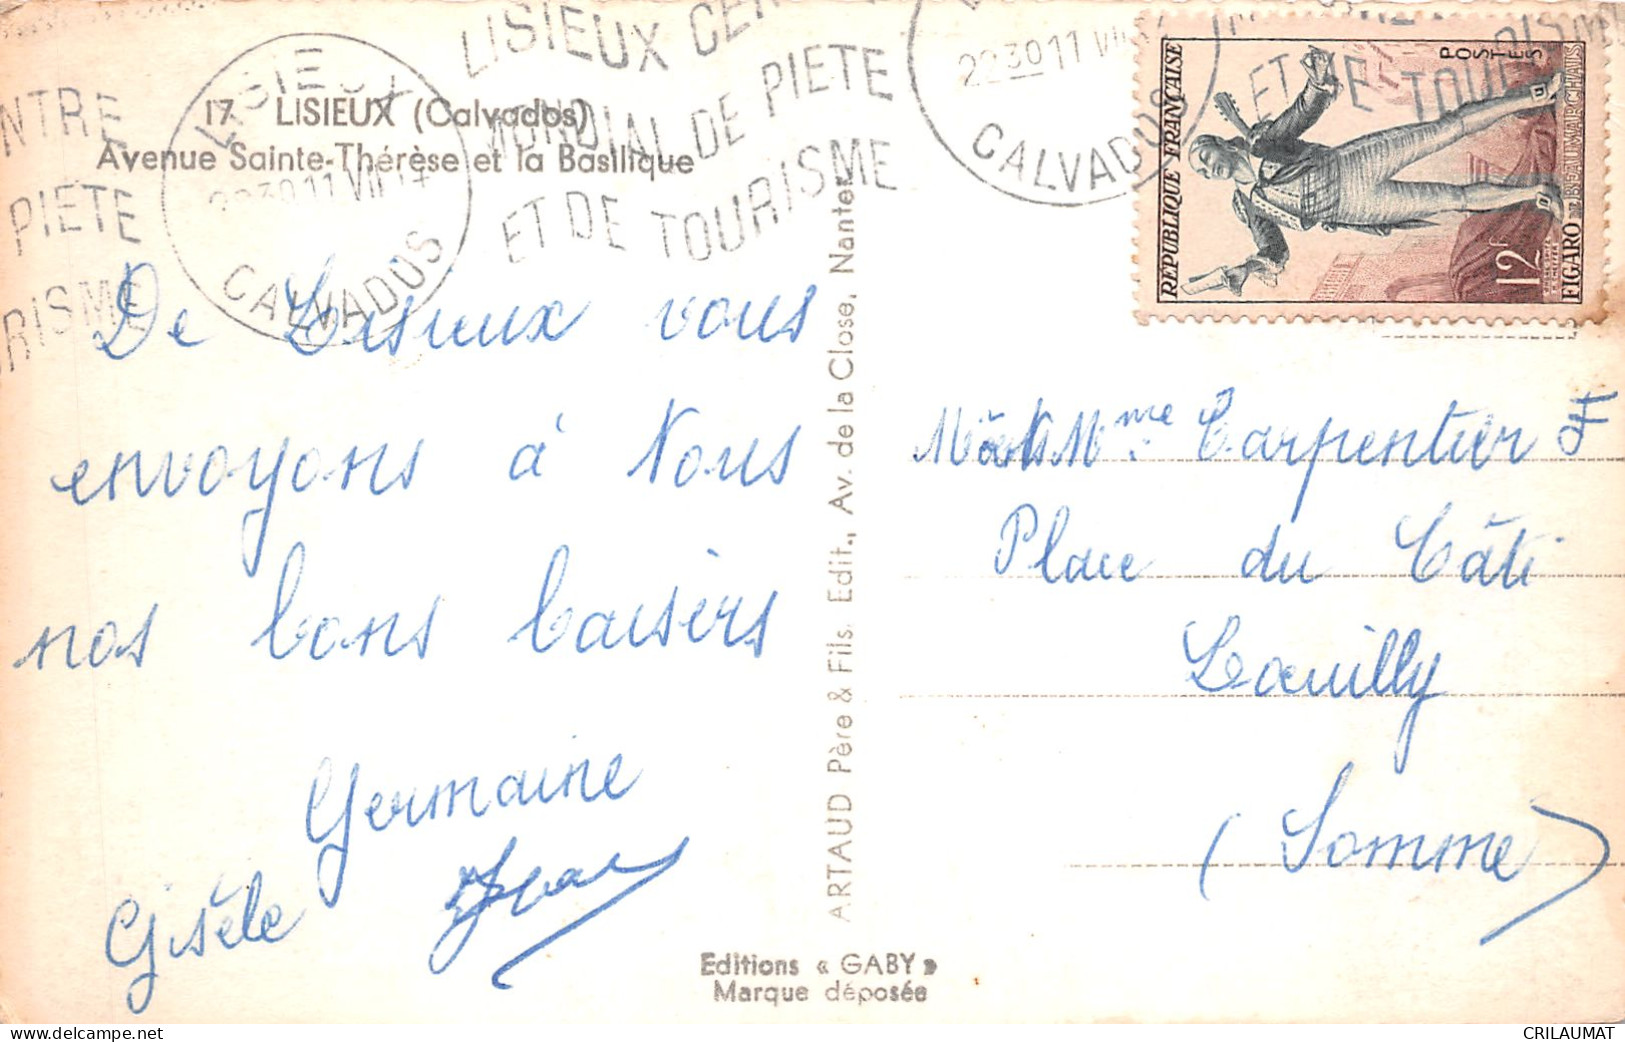 17 LISIEUX (Calvados)
Avenue Sainte-Thérèse et la Basilique
LISIEUX
2230 11 VII
CALVADOS
NTRE
PIETE
RISME
LISIEUX CEN
MONDIAL DE PIETE
ET DE TOURISME
2230 11 VII
CALVADOS
ET DE TOURISME
POSTES
REPUBLIQUE FRANÇAISE
12F
FIGARO DE BEAUMARCHAIS
De Lisieux vous
envoyons à Nous
nos bons baisers
Germaine
Gisèle Jean
ARTAUD Père & Fils. Edit., Av. de la Close, Nantes
Editions « GABY »
Marque déposée
Mme Carpentier
Place du Câti
Lœuilly
(Somme)
CRILAUMAT